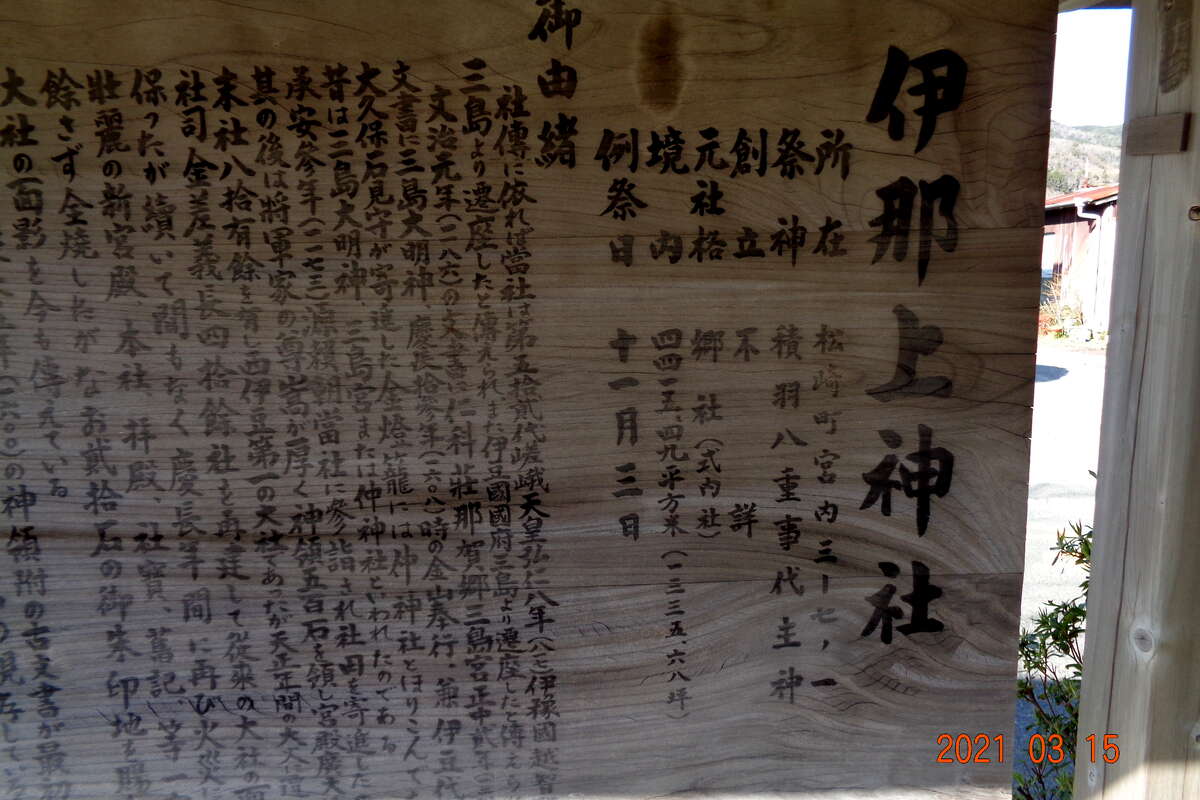 伊那上神社
所在 松崎町宮内三ー七、一
祭神 積羽八重事代主神
創立 不詳
元社格 郷社(式内社)
境内 四四一五、四九平方米(一三三五、六八坪)
例祭日 十一月三日
御由緒
社傳に依れば當社は第五拾貳代嵯峨天皇弘仁八年(八一七)伊豫國越智
三島より遷座したと傳えられまた伊豆國國府三島より遷座したと傳
文治元年(一一八六)の文書に仁科荘那賀郷三島宮正中貳年
文書に三島大明神、慶長拾參年(一六〇八)時の金山奉行、兼伊豆代
大久保石見守が寄進した金燈籠には仲神社とほりこんで
昔は三島大明神、三島宮または仲神社といわれたのである
承安參年(一一七三)源頼朝當社に參詣され社田を寄進
其の後は將軍家の尊崇が厚く神領五百石を領し宮殿廣大
末社八拾有餘を有し西伊豆第一の大社であったが天正年間の大
社司金差義長四拾餘社を再建して従来の大社の面
保ったが續いて間もなく慶長年間に再び火災に
壮麗の新宮殿、本社、拝殿、社寶、舊記、等一
餘さず全焼したがなお貳拾石の御朱印地を賜
大社の面影を今も傳えている
の神領附の古文書が最初
2021 03 15